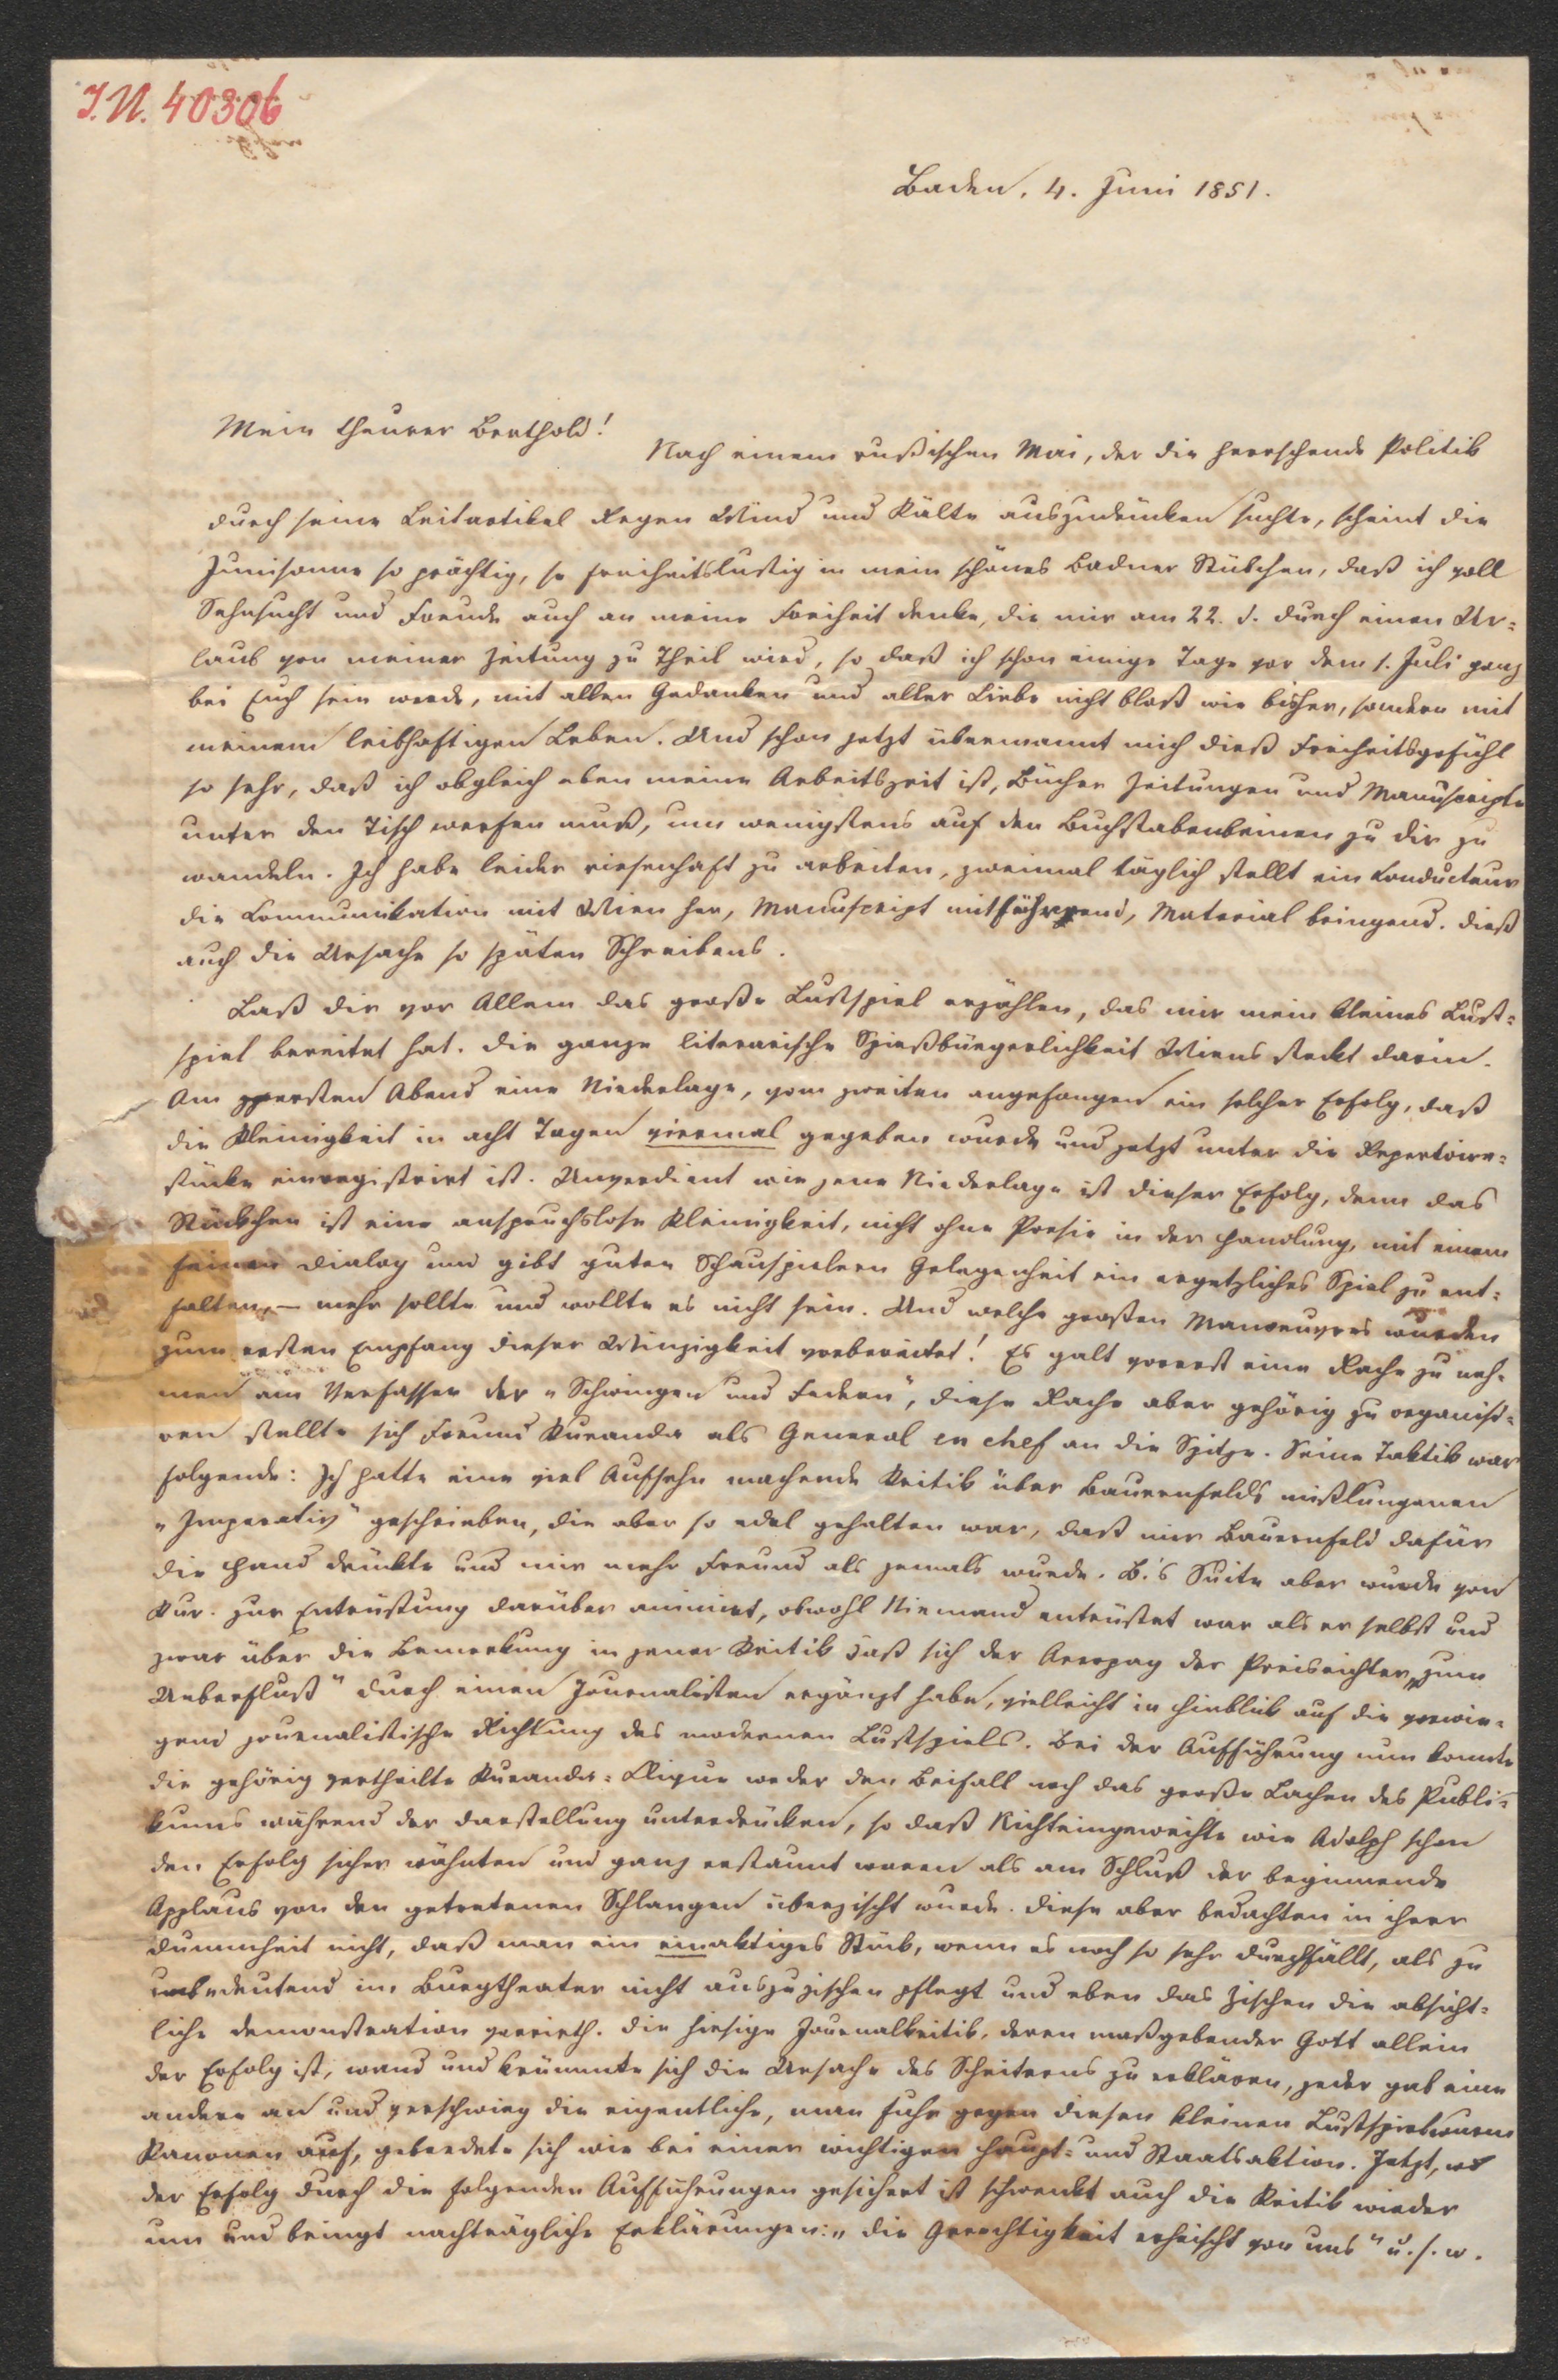 I.N. 40306
Baden, 4. Juni 1851.
Mein theurer Berthold!
Nach einem rußischen Mai, der die herrschende Politik
durch seine Leitartikel Regen Wind und Kälte auszudrücken suchte, scheint die
Junisonne so prächtig, so freiheitslustig in mein schönes Badner Stübchen, daß ich voll
Sehnsucht und Freude auch an meine Freiheit denke, die mir am 22. d. durch einen Ur-
laub von meiner Zeitung zu Theil wird, so daß ich schon einige Tage vor dem 1. Juli ganz
bei Euch sein werde, mit allen Gedanken und aller Liebe nicht bloß wie bisher, sondern mit
meinem leibhaftigen Leben. Und schon jetzt übermannt mich dieß Freiheitsgefühl
so sehr, daß ich obgleich eben meine Arbeitszeit ist, Bücher Zeitungen und Manuscripte
unter den Tisch werfen muß, um wenigstens auf den Buchstabenbeinen zu dir zu
wandeln. Ich habe leider riesenhaft zu arbeiten, zweimal täglich stellt ein Conducteur
die Communikation mit Wien her, Manuscript mitführend, Material bringend. dieß
auch die Ursache so späten Schreibens.
Laß dir vor Allem das große Lustspiel erzählen, das mir mein kleines Lust-
spiel bereitet hat. die ganze literarische Spießbürgerlichkeit Wiens steckt darin.
Am ersten Abend eine Niederlage, vom zweiten angefangen ein solcher Erfolg, daß
die Kleinigkeit in acht Tagen viermal gegeben wurde und jetzt unter die Repertoire-
stücke einregistrirt ist. Unverdient wie jene Niederlage ist dieser Erfolg, denn das
Stückchen ist eine anspruchslose Kleinigkeit, nicht ohne Poesie in der Handlung, mit einem
feinen Dialog und gibt guten Schauspielern Gelegenheit ein ergetzliches Spiel zu ent-
falten, — mehr sollte und wollte es nicht sein. Und welche großen Manoeuvres wurden
zum ersten Empfang dieser Winzigkeit vorbereitet! Es galt vorerst eine Rache zu neh-
men am Verfasser der „Schwingen und Federn", diese Rache aber gehörig zu organisi-
ren stellte sich Freund Kuranda als General en chef an die Spitze. Seine Taktik war
folgende: Ich hatte eine viel Aufsehn machende Kritik über Bauernfelds mißlungenen
„Imperativ" geschrieben, die aber so edel gehalten war, daß mir Bauernfeld dafür
die Hand drückte und mir mehr Freund als jemals wurde. B.'s Suite aber wurde von
Kur. zur Entrüstung darüber animirt, obwohl Niemand entrüstet war als er selbst und
zwar über die Bemerkung in jener Kritik daß sich der Areopag der Preisrichter „zum
Ueberfluß" durch einen Journalisten ergänzt habe, vielleicht in Hinblick auf die vorwie-
gend journalistische Richtung des modernen Lustspiels. Bei der Aufführung nun konnte
die gehörig vertheilte Kuranda-Clique weder den Beifall noch das große Lachen des Publi-
kums während der Darstellung unterdrücken, so daß Nichteingeweihte wie Adolph schon
den Erfolg sicher wähnten und ganz erstaunt waren als am Schluß der beginnende
Applaus von den getretenen Schlangen überzischt wurde. diese aber bedachten in ihrer
Dummheit nicht, daß man ein einaktiges Stück, wenn es noch so sehr durchfällt, als zu
unbedeutend im Burgtheater nicht auszuzischen pflegt und eben das Zischen die absicht-
liche Demonstration verrieth. die hiesige Journalkritik, deren maßgebender Gott allein
der Erfolg ist, wand und krümmte sich die Ursache des Scheiterns zu erklären, jeder gab eine
andere an und verschwieg die eigentliche, man fuhr gegen diesen kleinen Lustspielwurm
Kanonen auf, geberdete sich wie bei einer wichtigen Haupt- und Staatsaktion. Jetzt, wo
der Erfolg durch die folgenden Aufführungen gesichert ist schwenkt auch die Kritik wieder
um und bringt nachträgliche Erklärungen: „die Gerechtigkeit erheischt von uns" u. s. w.